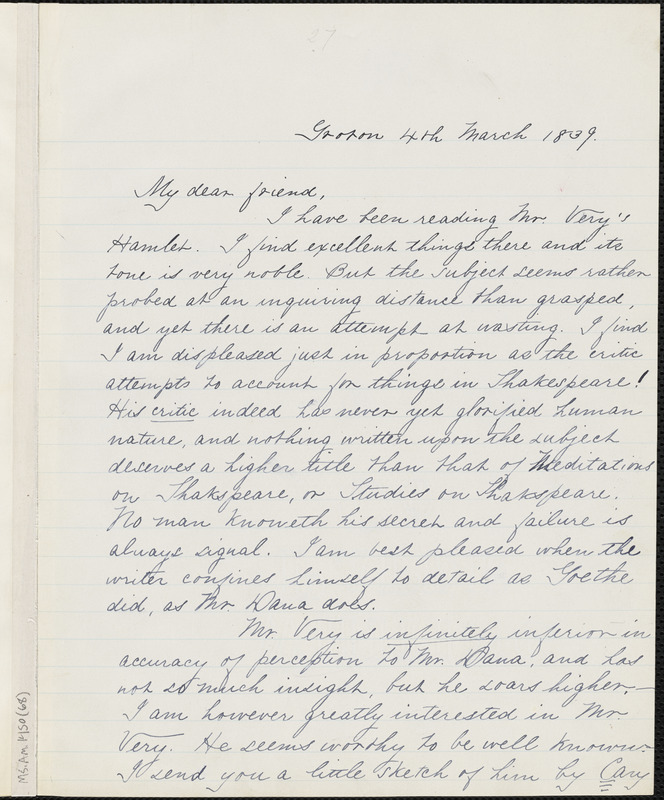 27
Groton 4th March 1839.
My dear friend,
I have been reading Mr. Very's
Hamlet. I find excellent things there and its
tone is very noble. But the subject seems rather
probed at an inquiring distance than grasped,
and yet there is an attempt at wasting. I find
I am displeased just in proportion as the critic
attempts to account for things in Shakespeare!
His critic indeed has never yet glorified human
nature, and nothing written upon the subject
deserves a higher title than that of Meditations
on Shakspeare, or Studies on Shakspeare.
No man knoweth his secret and failure is
always signal. I am best pleased when the
writer confines himself to detail as Goethe
did, as Mr. Dana does.
Mr. Very is infinitely inferior in
accuracy of perception to Mr. Dana, and has
not so much insight, but he soars higher.—
I am however greatly interested in Mr.
Very. He seems worthy to be well known—
I send you a little sketch of him by Cary
MS. Am. 1450 (68)